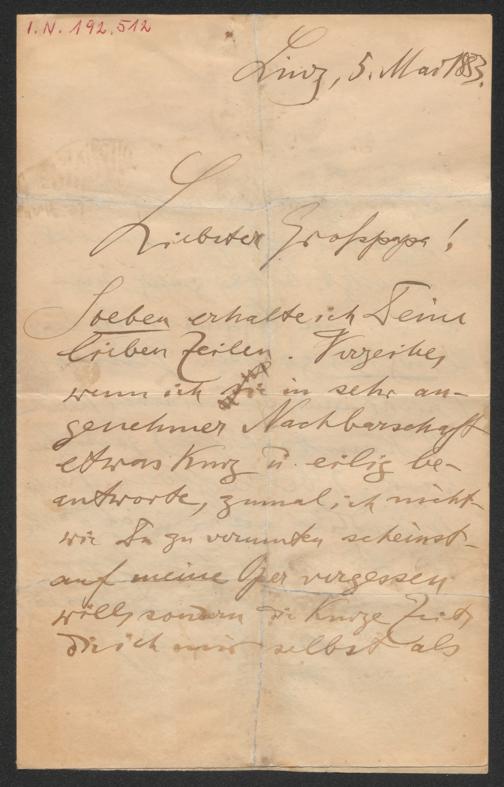 I. N. 192.512
Linz, 5. Mai 1883.
Liebster Grosspapa!
Soeben erhalte ich Deine
lieben Zeilen. Verzeihe,
wenn ich sie in sehr an-
genehmer Nachbarschaft
etwas kurz u. eilig be-
antworte, zumal ich nicht
wie Du zu vermuten scheinst -
auf meine Oper vergessen
will, sondern die kurze Zeit,
die ich mir selbst als